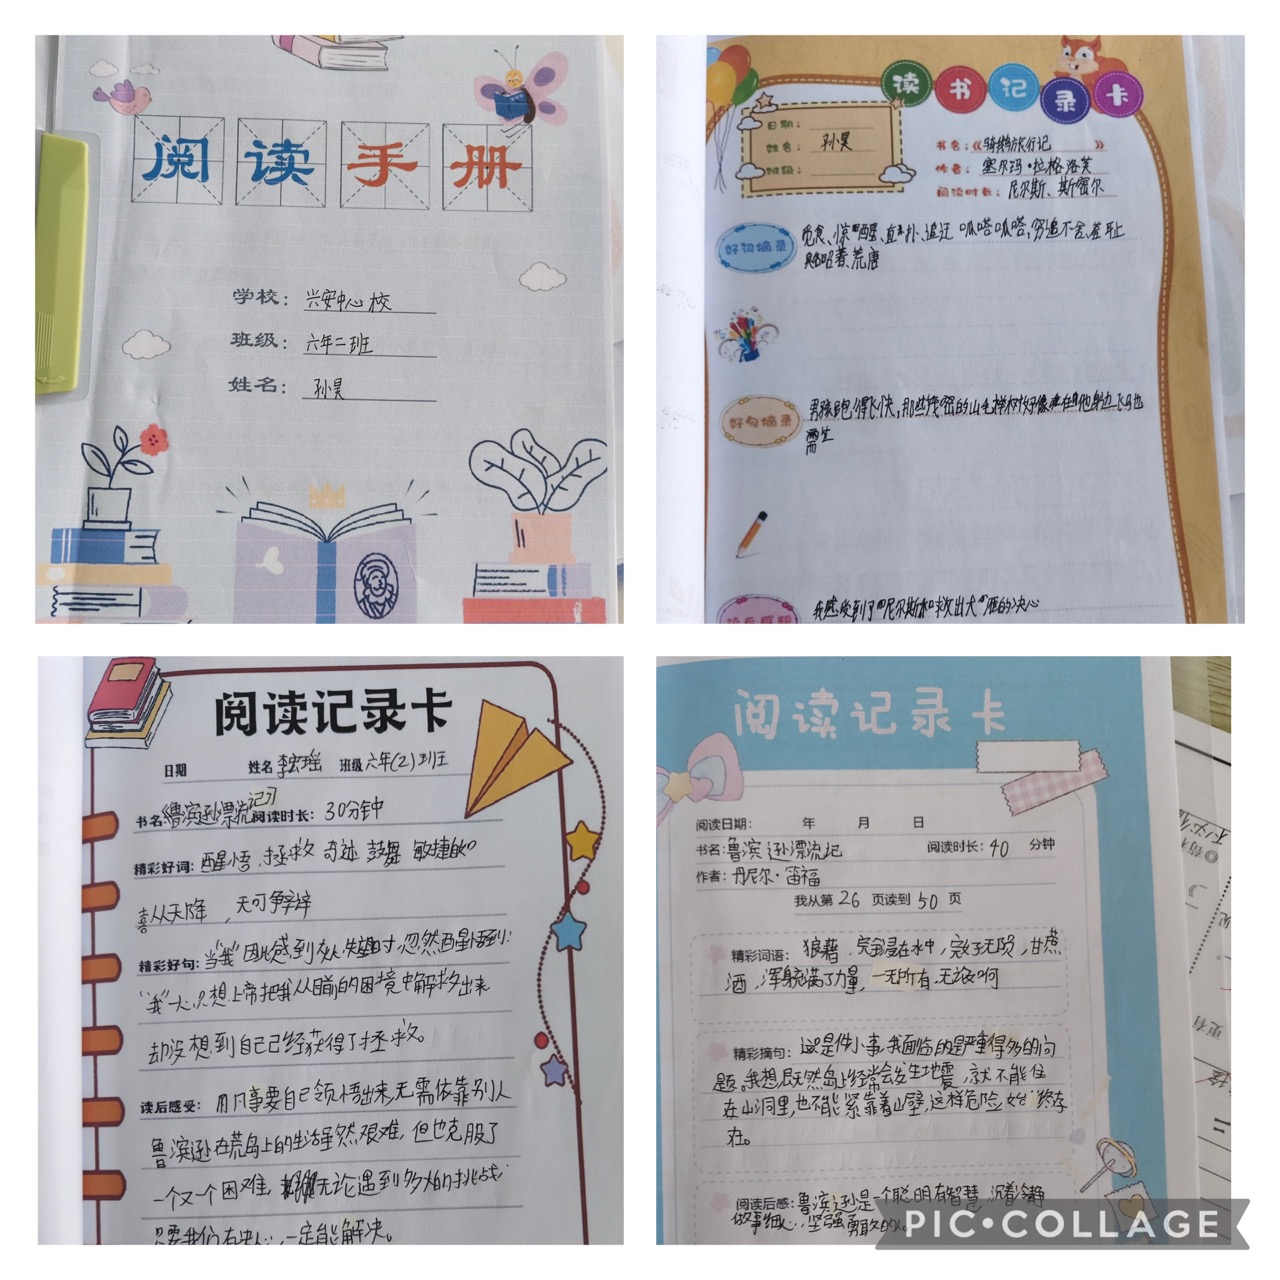 阅读手册
学校：兴安中心校
班级：六年二班
姓名：孙昊
读书记录卡
日期：
姓名：孙昊
班级：
书名：《骑鹅旅行记》
作者：塞尔玛·拉格洛芙
阅读时长：尼尔斯、斯密尔
好词摘录
觅食、惊醒、直扑、追赶 呱嗒呱嗒,穷追不舍,羞耻
荒唐
好句摘录
男孩跑得飞快,那些茂密的山毛榉树好像在他身边
我感受到了尼尔斯和救出大雁的决心
阅读记录卡
日期 姓名 李宏瑶 班级 六年(2)班
书名:《鲁滨逊漂流记》 阅读时长: 30分钟
精彩好词: 醒悟 拯救 奇迹 鼓舞 敏捷的
喜从天降 ,无可争辩
精彩好句: 当“我”因此感到灰心失望时,忽然醒悟到:
“我”一心只想上帝把我从目前的困境中解救出来
却没想到自己已经获得了拯救。
读后感受: 凡事要自己领悟出来,无需依靠别人
鲁滨逊在荒岛上的生活虽然艰难, 但也克服了
一个又一个困难, 无论遇到多大的挑战
只要我们有决心,一定能解决。
阅读记录卡
阅读日期: 年 月 日
书名:鲁滨逊漂流记 阅读时长:40 分钟
作者:丹尼尔·笛福
我从第26页读到50页
精彩词语: 狼藉,完全浸在水中,完好无损,甘蔗
酒,浑身充满了力量,一无所有,无济
精彩摘句: 这是件小事,我面临的是严重得多的问
题。我想,既然岛上经常会发生地震,就不能住
在山洞里,也不能紧靠着山壁,这样危险始终存
在。
阅读后感:鲁滨逊是一个聪明有智慧,沉着冷静
做事细心,坚强勇敢的人
PIC•COLLAGE